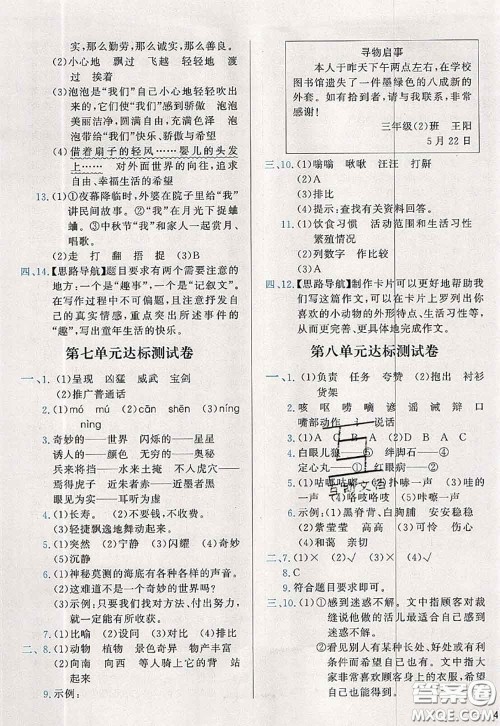 实,那么勤劳,那么诚实,那么善良。
(2)小心地 飘过 飞越 轻轻地 渡
过 挨着
(3)泡泡是“我们”自己小心地轻轻吹
出来的,它们使“我们”感到骄傲 泡泡
美丽、自由、充满光泽 泡泡
能带给“我们”快乐、骄傲与希望
(4)借着扇子的轻风……婴儿的头发
上…… 对外面世界的向往,追求
自由、幸福生活的希望
13.(1)①夜幕降临时,外婆在院子里给“我”
讲民间故事。②“我”在月光下捉蛐
蛐。③中秋节“我”和家人一起赏月、
唱歌。
(2)走 打 捧 跳 翻 举
四、14.【思路导航】题目要求有两个需要注意的
地方:一个是“趣事”,一个是“记叙文”。
在写作过程中不可偏题,且注意抒发自
己的真情实感,重点突出所述事件的
“趣”,写出童年生活的快乐。
第七单元达标测试卷
一、1.(1)呈现 凶猛 威武 宝剑
(2)推广普通话
2.(1)mó mú (2)cān shēn (3)néng níng
3.奇妙的——世界 闪烁的——星星
诱人的——颜色 奇异的——风光
兵来将挡——水来土掩 不入虎穴——
焉得虎子 近朱者赤——近墨者黑
眼见为实——耳听为虚
4.(1)长寿。 (2)不得了。
(3)轻捷飘逸地舞动起来。
5.(1)突出 (2)宁静 (3)闪耀 (4)奇妙
(5)沉静
6.(1)神秘莫测的海底有各种各样的声音。
(2)这难道不是一个奇妙的世界吗?
(3)示例:只要我们坚持努力付出,我们
就一定能有所收获。
7.(1)比喻 (2)设问 (3)对比 (4)夸张
二、8.(1)动物 植物 景色奇异 物产丰富
(2)向南 向西 等人骑上去 骑上去
吧
9.示例:
寻物启事
本人于昨天下午两点左右,在学校
图书馆遗失了一件墨绿色的八成新的
外套。如有拾到者,请与我联系,非常
感谢!
三年级(2)班 王阳
5月22日
三、10.(1)嗡嗡 啾啾 汪汪 打鼾
(2)A
(3)排比
(4)提示:查找有关资料回答。
11.(1)饮食习惯 活动范围和生活习性
繁殖情况
(2)列数字 作比较
(3)A
四、12.【思路导航】制作卡片可以更好地帮助我
们写这篇作文,可以在卡片上罗列出你
喜欢的小动物的外形模样、生活习性等,
然后具体地描述出来,完成作文。
第八单元达标测试卷
一、1.(1)负责 任务 夸赞 (2)抱出 衬衫
货架
2.咳 呕 唠 嘀 谚 谣 诚 辩 口
嘴部动作 讠 说话
3.(1)A B C A (2)D B A C
4.白眼儿狼① ⑤ 绊脚石——④
定心丸—— ① 红眼病——②
5.(1)咕嘟咕嘟 (2)扑哧一声 (3)哇的
一声 (4)咯吱咯吱 (5)嗖的一声
6.示例:(1)黑脊背、白胸脯 安安稳稳
(2)紫莹莹 (3)高高 (4)可怜 伤心
(5)开心
二、7.(1)× (2)√ (3)× (4)√
8.C
9.符合题目要求即可。
三、10.(1)①感到迷惑不解。文中指顾客对裁
缝说他做的活儿与别人不一样而
感到迷惑不解。
②看见别人有某种长处、好处或有利
条件而希望自己也有。文中指顾客
非常喜欢大家的衣服,希望自己也有。
答案圈
MXQE.COM